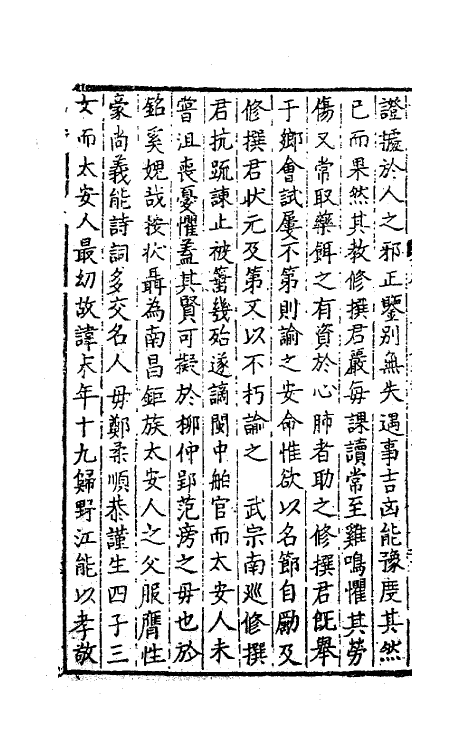 證據於人之邪正鑒別無失遇事吉凶能豫度其然
已而果然其教修撰君嚴每課讀常至雞鳴懼其勞
傷又常取藥餌之有資於心肺者助之修撰君旣舉
于鄉會試屢不第則諭之安命惟欲以名節自勵及
修撰君狀元及第又以不朽諭之　武宗南巡修撰
君抗䟽諫止被箠幾殆遂謫閩中舶官而太安人未
嘗沮喪憂懼葢其賢可擬於柳仲郢范滂之毋也於
銘奚媿哉按狀聶為南昌鉅族太安人之父服膺性
豪尚義能詩詞多交名人毋鄭柔順恭謹生四子三
女而太安人最幼故諱年十九歸野江能以孝敬